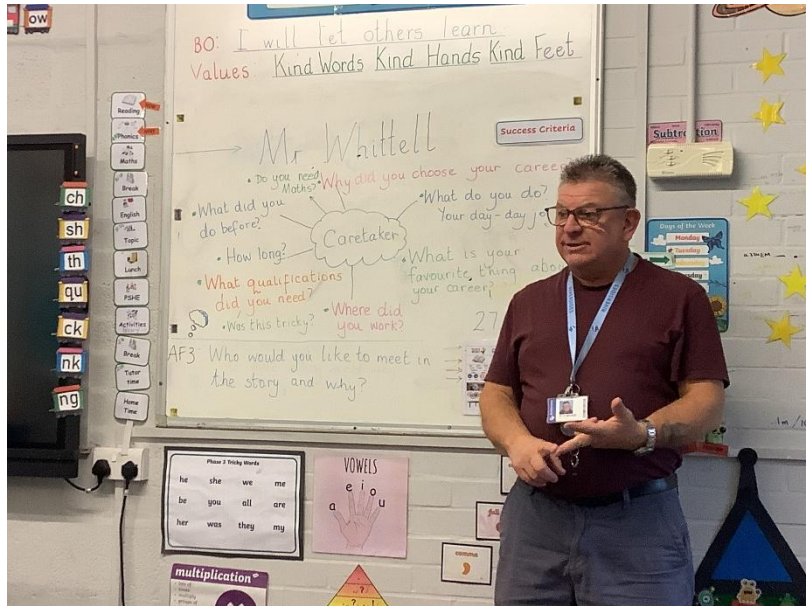 ow
BO: I will let others learn
Values: Kind Words Kind Hands Kind Feet
Mr Whittell
Success Criteria
• Do you need Maths?
• Why did you choose your career
• What did you
do before?
• What do you do?
Your day-day jo
Caretaker
• How long?
• What is your
favourite thing abou
your career?
• What qualifications
did you need?
• Was this tricky?
• Where did
you work?
27
AF3 Who would you like to meet in
the story and why?
Reading
Phonics
Maths
Break
English
Topic
Lunch
PSHE
Activities
Break
Tutor
time
Home
Time
ch
sh
th
qu
ck
nk
ng
Subtraction
Days of the Week
Monday
Tuesday
Phase 2 Tricky Words
he she we me
be you all are
her was they my
VOWELS
a e i o u
comma
,
multiplication